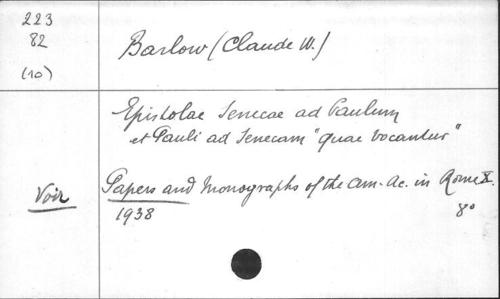 223
82
(10)
Barlow (Claude W.)
Epistolae Senecae ad Paulum
et Pauli ad Senecam "quae vocantur"
Voir
Papers and Monographs of the Am. Ac. in Rome X.
1938
8°